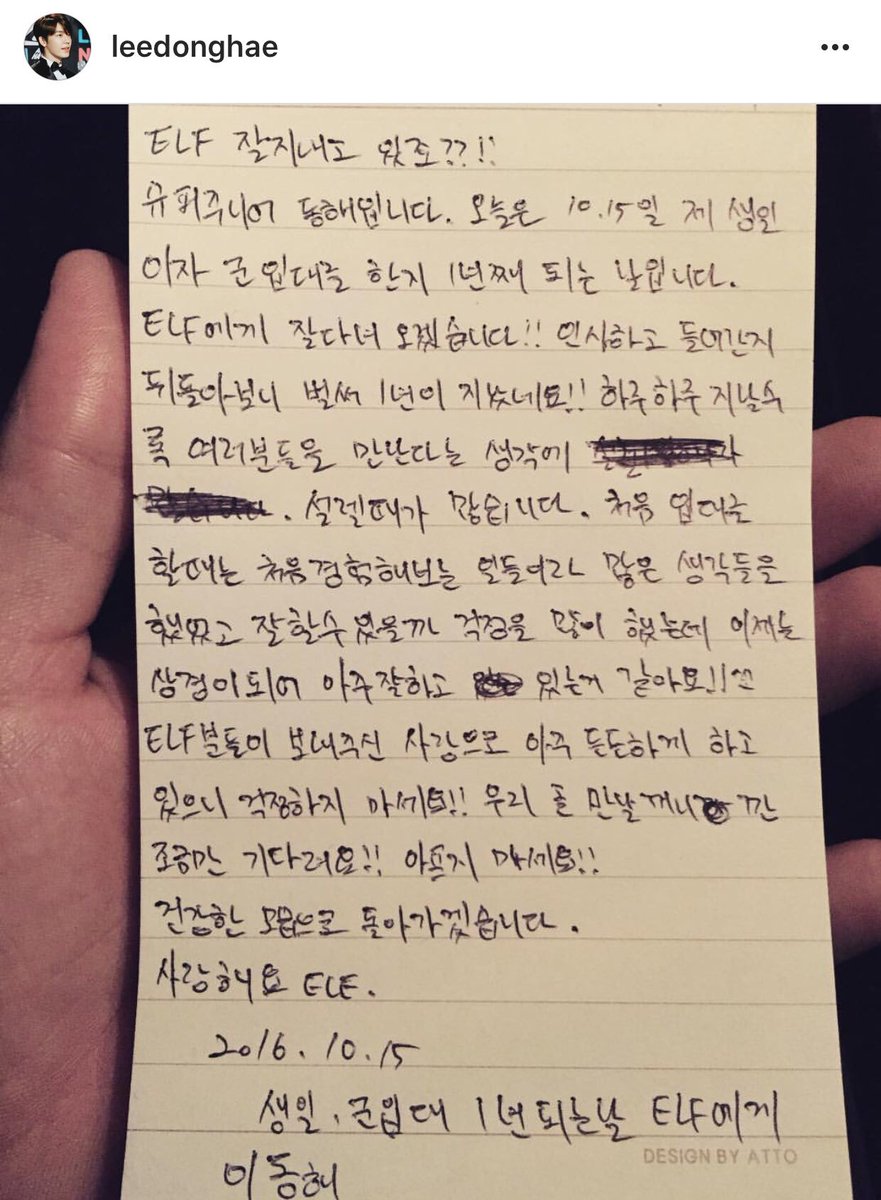 leedonghae
ELF 잘지내고 있죠??!!
슈퍼주니어 동해입니다. 오늘은 10.15일 제 생일
이자 군 입대를 한지 1년째 되는 날입니다.
ELF에게 잘다녀 오겠습니다!! 인사하고 들어간지
뒤돌아보니 벌써 1년이 지났네요!! 하루하루 지날수
록 여러분들을 만난다는 생각에
. 설렐때가 많습니다. 처음 입대를
할때는 처음경험해보는 일들이라 많은 생각들을
했었고 잘할수 있을까 걱정을 많이 했는데 이제는
상경이되어 아주잘하고 있는거 같아요!!^^
ELF분들이 보내주신 사랑으로 아주 든든하게 하고
있으니 걱정하지 마세요!! 우리 곧 만날꺼니깐
조금만 기다려요!! 아프지 마세요!!
건강한 모습으로 돌아가겠습니다.
사랑해요 ELF.
2016. 10. 15
생일, 군입대 1년되는날 ELF에게
DESIGN BY ATTO
이동해